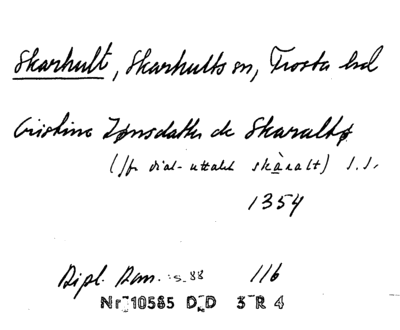 Skarhult, Skarhults sn, Frosta hd
Cristine Jønsdatter de Skaralt
(jfr dial-uttalet skàralt) s. s.
1354
Dipl. Dan. s. 88 116
Nr 10585 D D 3 R 4